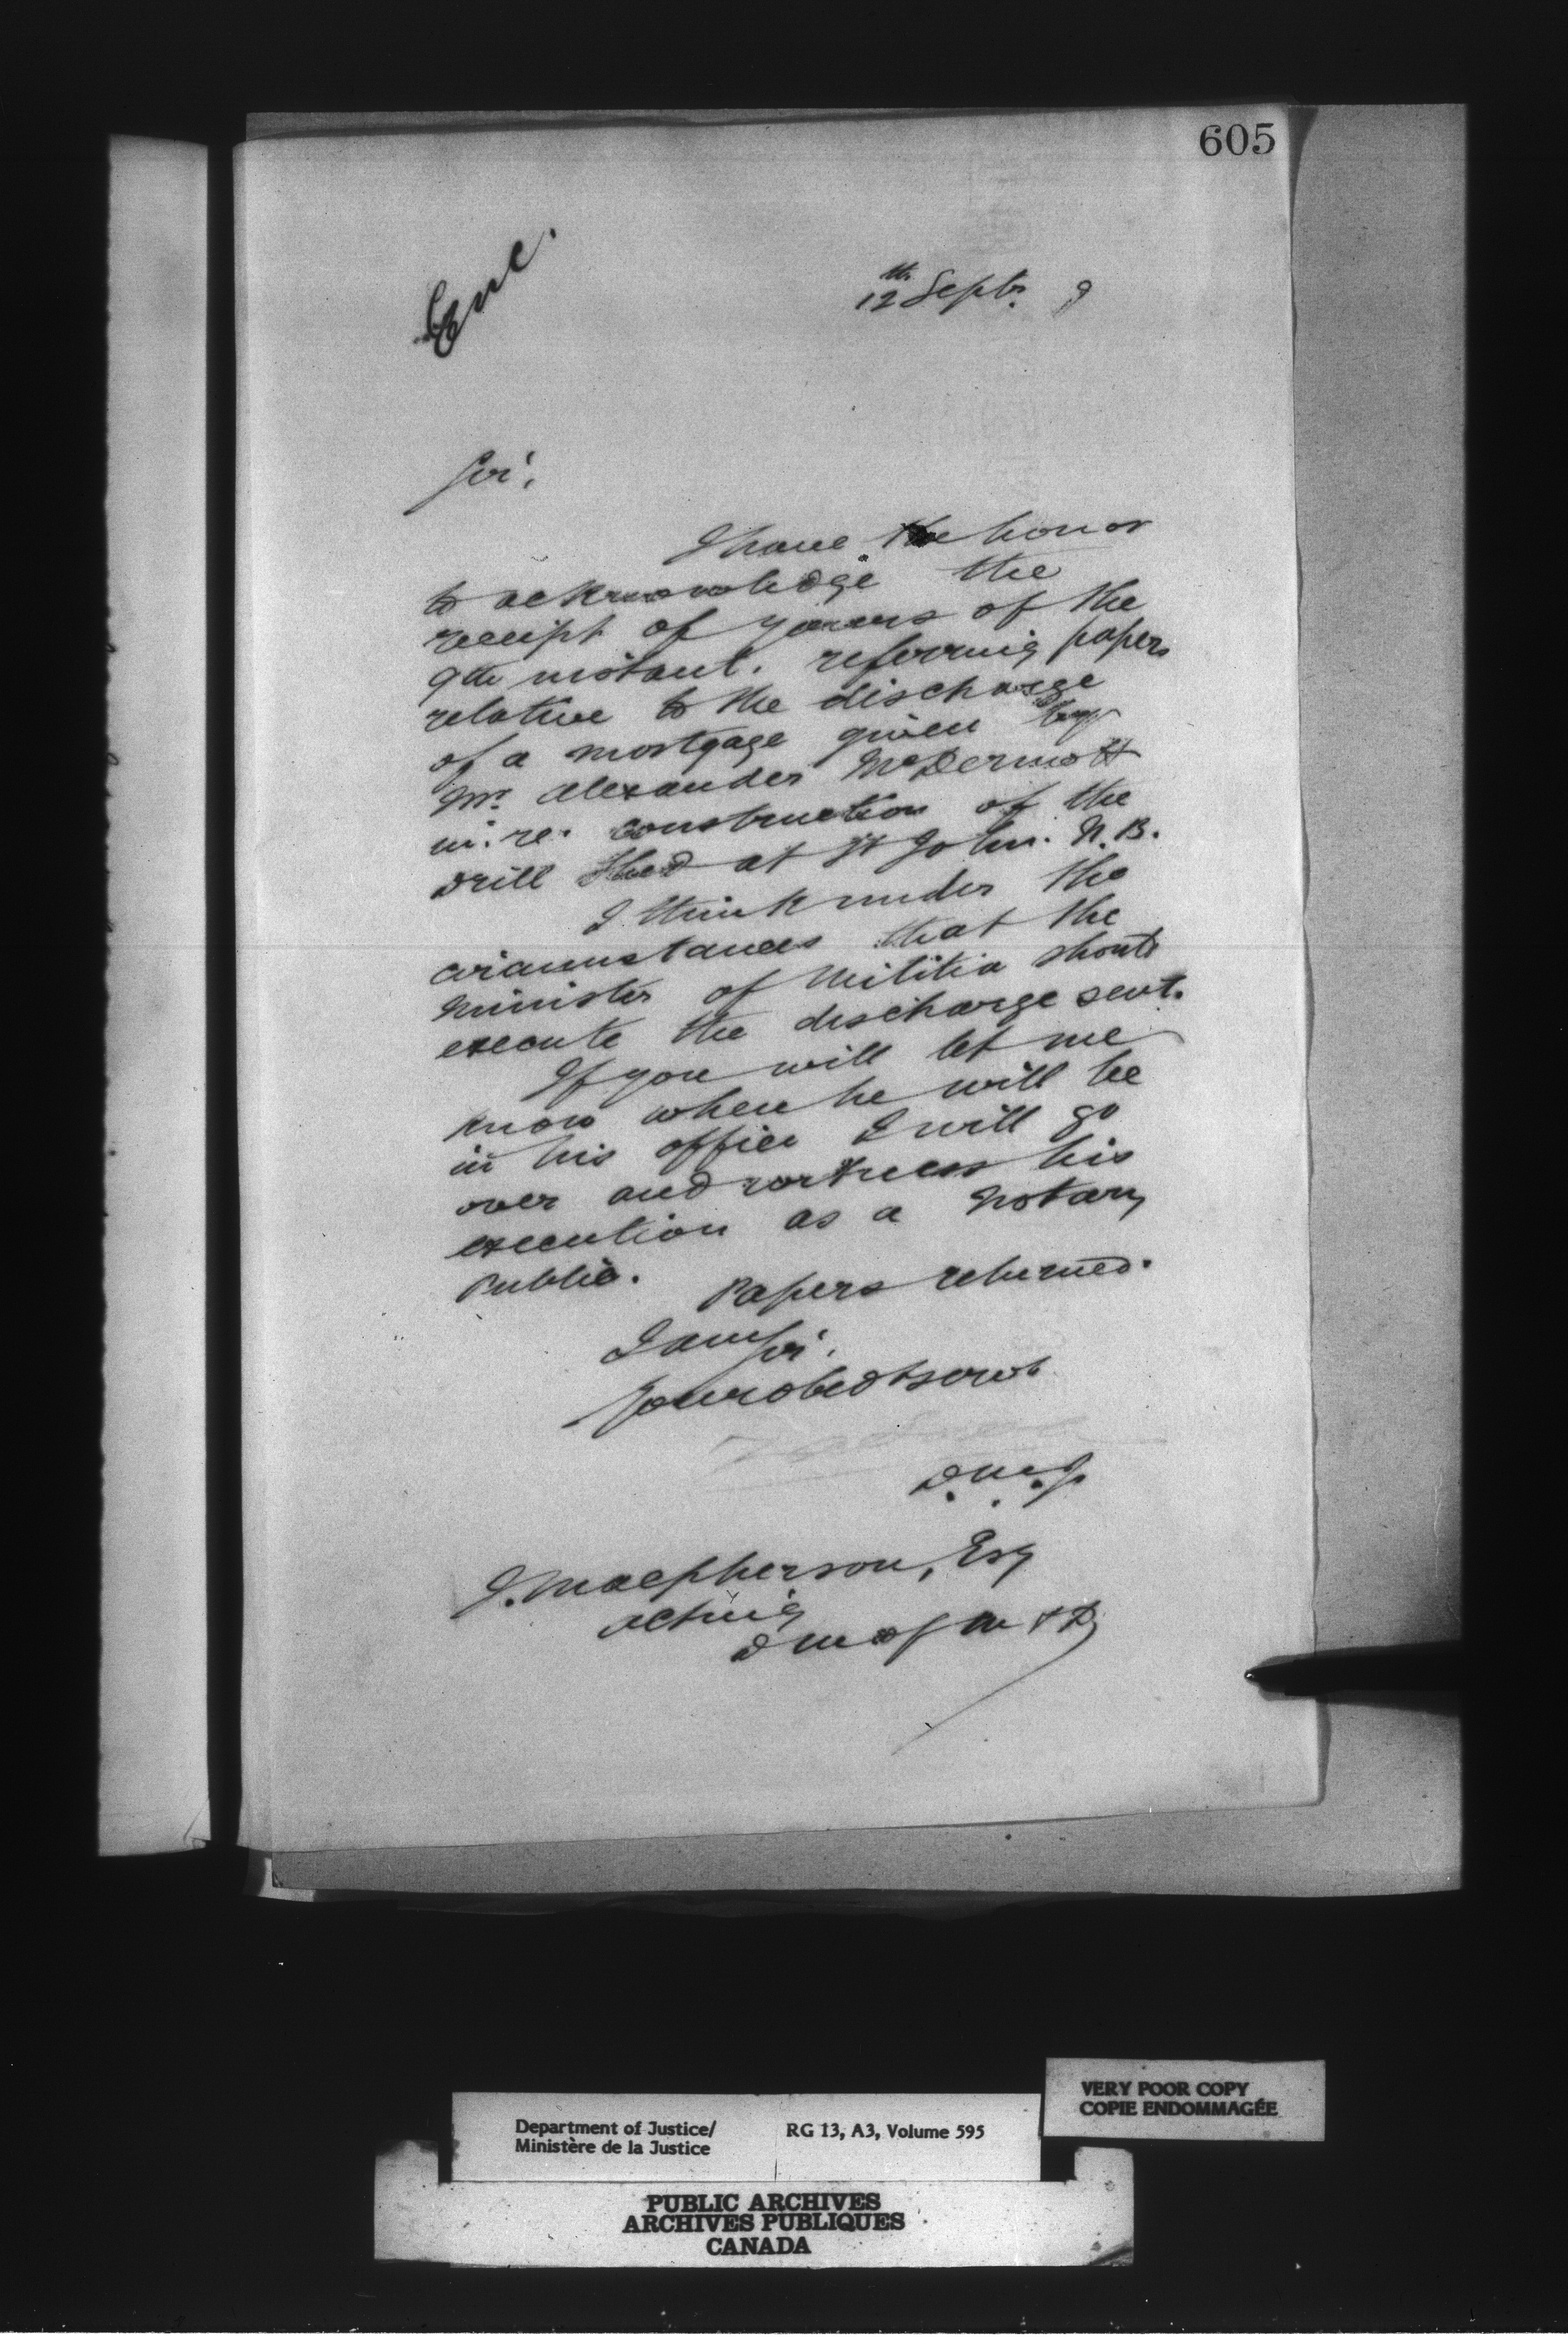 605
Enc.
12th Septr. 9
Sir,
I have the honor
to acknowledge the
receipt of yours of the
9th instant. referring papers
relative to the discharge
of a mortgage given by
Mr. Alexander McDermott
in. re. construction of the
Drill Shed at St John. N.B.
I think under the
circumstances that the
Minister of Militia should
execute the discharge sent.
If you will let me
know when he will be
in his office I will go
over and witness his
execution as a Notary
Public.
Papers returned.
I am Sir.
Your obedt servt
D.M.J.
J. Macpherson, Esq
Acting
D M of M & D
Department of Justice/
Ministère de la Justice
RG 13, A3, Volume 595
VERY POOR COPY
COPIE ENDOMMAGÉE
PUBLIC ARCHIVES
ARCHIVES PUBLIQUES
CANADA